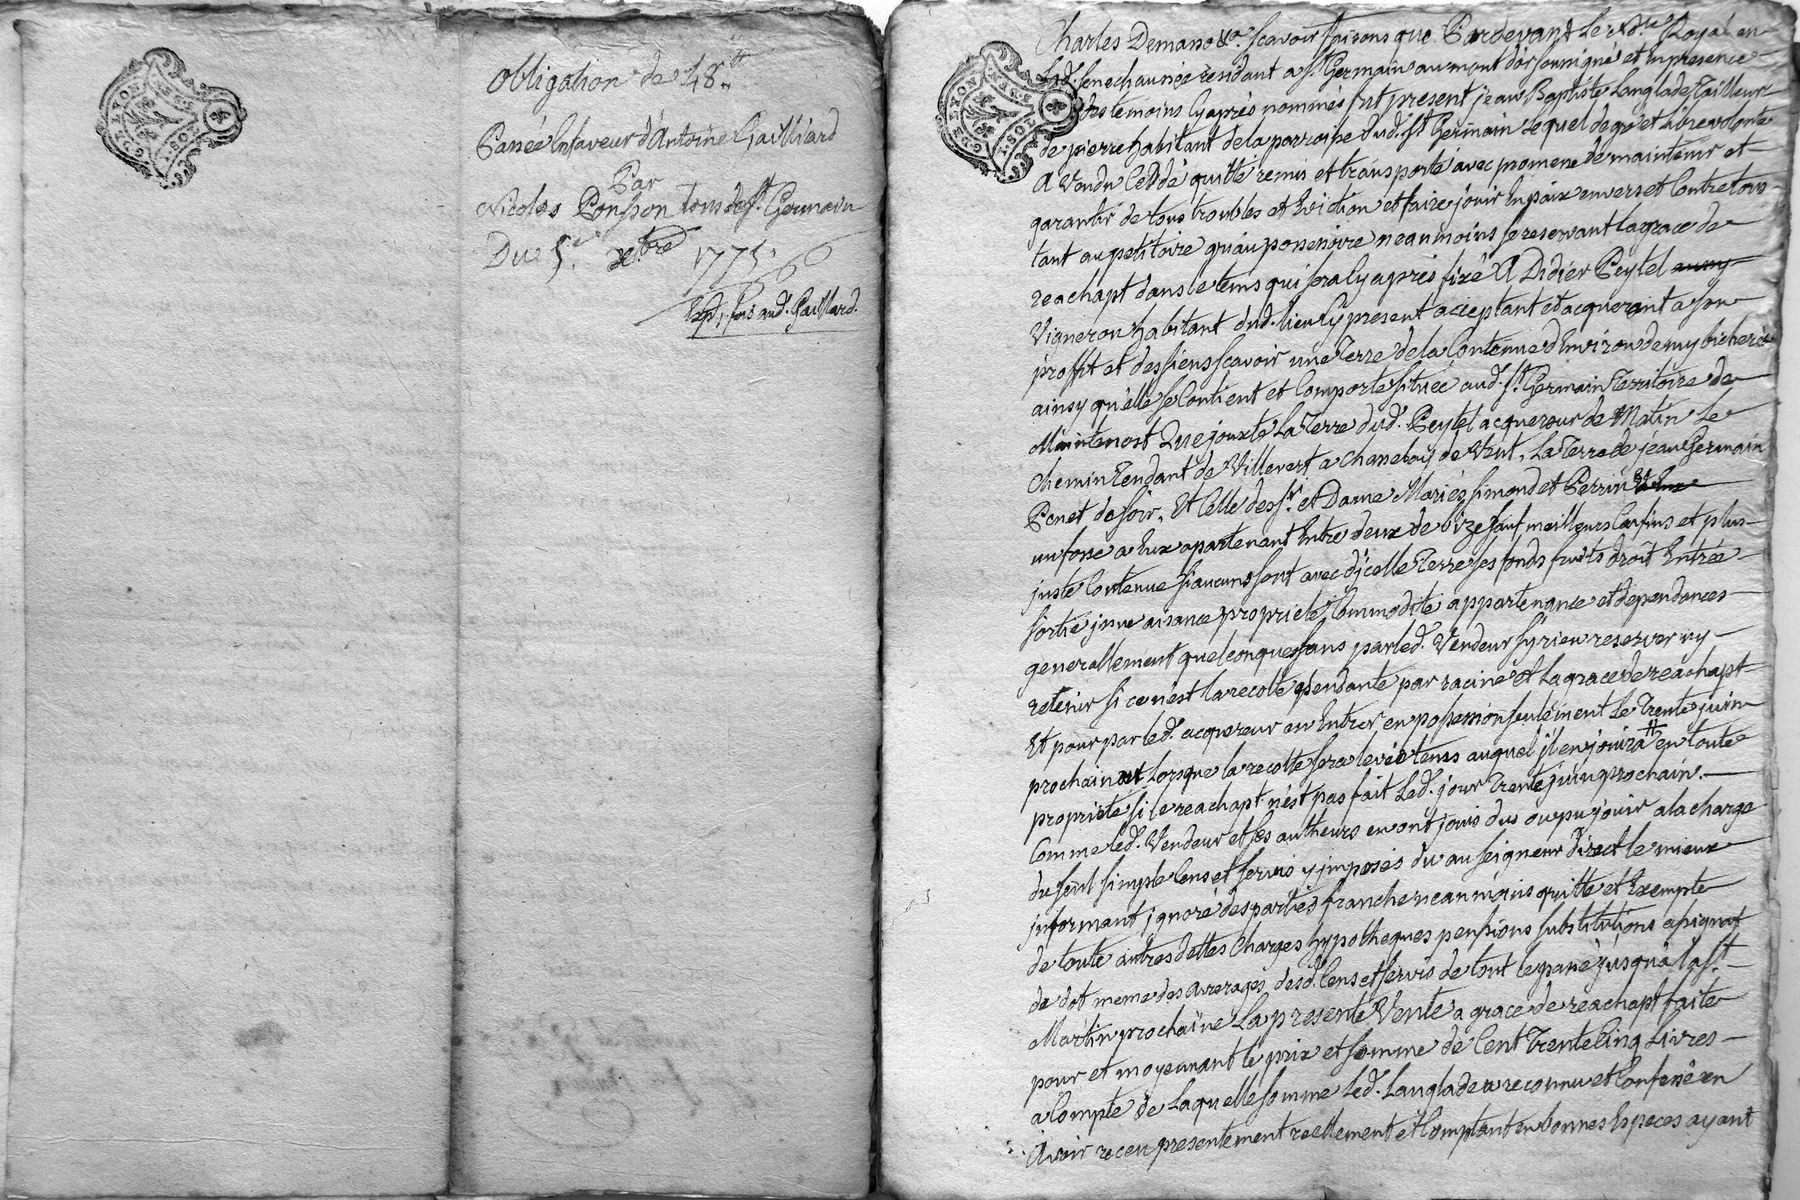 G. DE LYON
1. SOL
Obligation de 48 ₶
Passée En faveur d'Antoine Gailliard
Par
Nicolas Ponsson tous de St. Germain
Du 5. xbre 1775.
Exp. fois aud. Gailliard.
G. DE LYON
1. SOL
Charles Demano &a. scavoir faisons que Pardevant Le Nre. Royal en
Lad. senechaussée residant a St. Germain au mont d'or soussigné et en presence
des temoins Cy après nommés fut present jean Baptiste Langlade Tailleur
de pierre habitant de la parroisse dud. St Germain Lequel de gré et Libre volonté
A Vendu Ceddé quitté remis et transporté avec promesse de maintenir et
garantir de tous troubles et Eviction et faire jouir En paix envers et Contre tous
tant au petitoire qu'au possessoire neanmoins se reservant la grace de
reachapt dans le tems qui sera Cy après fixé A Didier Peytel
Vigneron habitant dud. lieu Cy present acceptant et acquerant a son
proffit et des siens scavoir une Terre de la Contenue d'Environ demy bicherée
ainsy qu'elle se Contient et Comporte située aud. St. Germain Territoire de
Maintenost Que jouxte La Terre dud. Peytel acquereur de Matin Le
Chemin Tendant de Villevert a Chasselay de Vent, La Terre de jean Germain
Ponet de soir, Et Celle des Sr. et Dame Mariéz simond et Perrin
un fossé a Eux apartenant Entre deux de bize sauf meilleurs Confins et plus
juste Contenue si aucuns sont avec d'jcelle Terre ses fonds fruits droit Entrée
sortie jssue aisance proprieté Commodité appartenance et dependances
generallement quelconques sans par led. Vendeur s'y rien reserver ny
retenir si ce n'est la recolte pendante par racine et La grace de reachapt
Et pour par led. acquereur en Entrer en possession seulement Le Trente juin
prochain Lorsque la recolte sera levée tems auquel jl en jouira # en toute
proprieté si le reachapt n'est pas fait Led. jour Trente juin prochain.
Comme led. Vendeur et ses autheurs en ont jouis dus ou pu jouir a la charge
du seul simple Cens et servis y jmposés du au seigneur direct le mieux
jnformant jgnoré des parties franche neanmoins quitte et Exempte
de toute autres dettes Charges hypotheques pensions substitutions assignat
de dot meme des arrerages desd. Cens et servis de tout le passé jusqu'à la St.
Martin prochaine La presente Vente a grace de reachapt faite
pour et moyennant le prix et somme de Cent Trente Cinq Livres
a Compte de Laquelle somme Led. Langlade a reconnu et Confessé en
Avoir receu presentement reellement et Comptant en bonnes Especes ayant